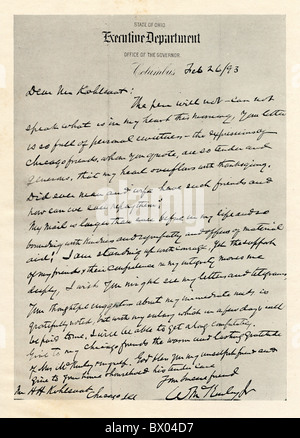 STATE OF OHIO
Executive Department
OFFICE OF THE GOVERNOR.
Columbus Feb 26/93
Dear Mr Kohlsaat:
The pen will not - can not
speak what is in my heart this morning, Your letter
is so full of personal sweetness - the expressions
Chicago friends, whom you quote, are so tender and
generous, that my heart overflows with thanksgiving.
Did ever man and wife have such friends and
how can we ever repay them?
My mail is larger than ever before in my life and so
bounding with kindness and sympathy and offers of material
aid! I am standing up with courage. Yet the support
of my friends & their confidence in my integrity moves me
deeply, I wish you might see my letters and telegrams,
Your thoughtful suggestion about my immediate needs, is
gratefully noted, but with my salary which in a few days will
be paid to me, I will be able to get along completely.
Give to my Chicago friends the warm and lasting gratitude
of Mrs McKinley & myself. God bless you my unselfish friend and
give to your household his tender care
Your sincere friend
Mr H H Kohlsaat Chicago Ill WMcKinley Jr
alamy
B2X04D7
www.alamy.com